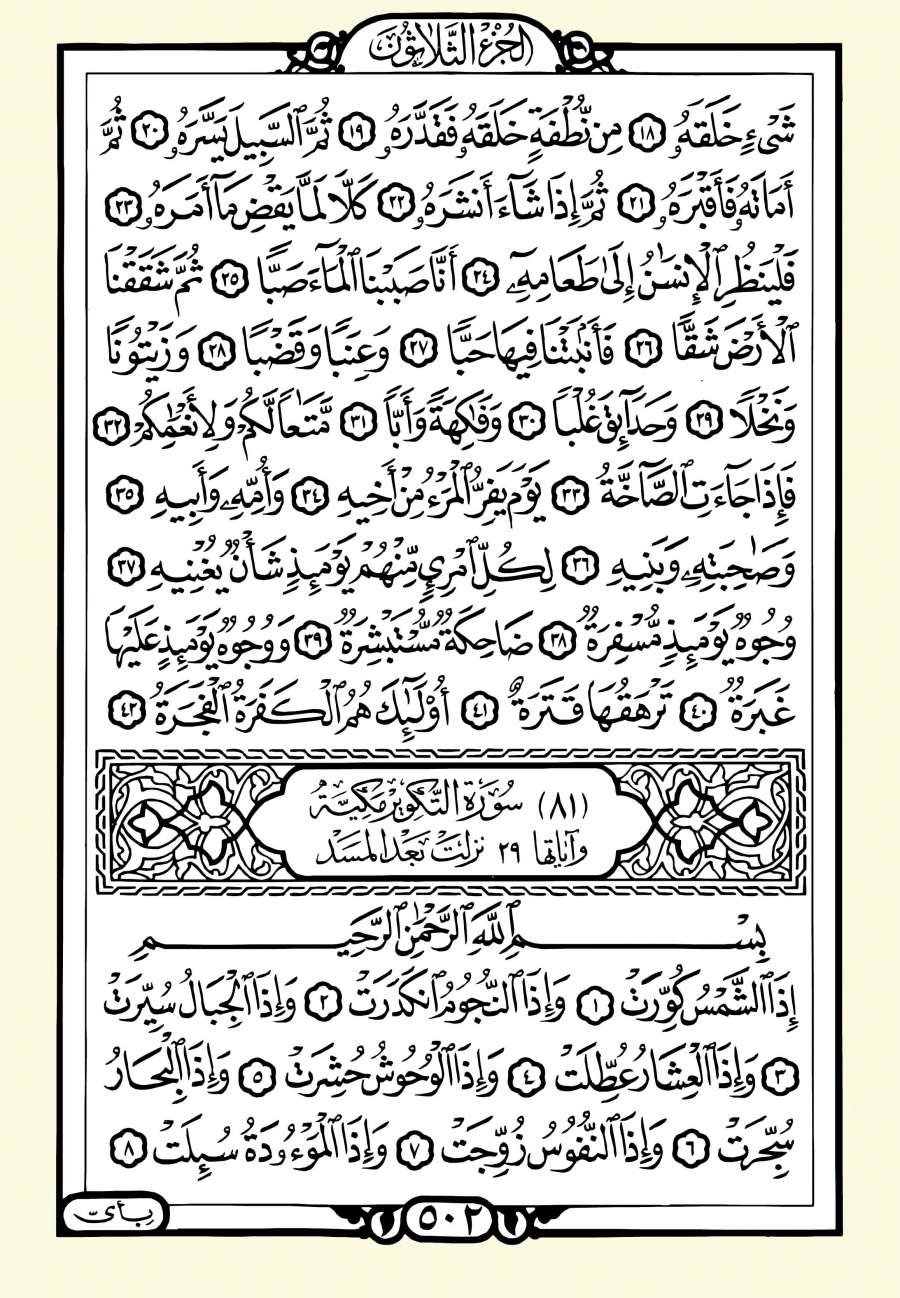 الجُزْءُ الثَّلَاثُونَ
شَىْءٍ خَلَقَهُۥ ١٨ مِن نُّطْفَةٍ خَلَقَهُۥ فَقَدَّرَهُۥ ١٩ ثُمَّ ٱلسَّبِيلَ يَسَّرَهُۥ ٢٠ ثُمَّ
أَمَاتَهُۥ فَأَقْبَرَهُۥ ٢١ ثُمَّ إِذَا شَآءَ أَنشَرَهُۥ ٢٢ كَلَّا لَمَّا يَقْضِ مَآ أَمَرَهُۥ ٢٣
فَلْيَنظُرِ ٱلْإِنسَٰنُ إِلَىٰ طَعَامِهِۦٓ ٢٤ أَنَّا صَبَبْنَا ٱلْمَآءَ صَبًّا ٢٥ ثُمَّ شَقَقْنَا
ٱلْأَرْضَ شَقًّا ٢٦ فَأَنۢبَتْنَا فِيهَا حَبًّا ٢٧ وَعِنَبًا وَقَضْبًا ٢٨ وَزَيْتُونًا
وَنَخْلًا ٢٩ وَحَدَآئِقَ غُلْبًا ٣٠ وَفَٰكِهَةً وَأَبًّا ٣١ مَّتَٰعًا لَّكُمْ وَلِأَنْعَٰمِكُمْ ٣٢
فَإِذَا جَآءَتِ ٱلصَّآخَّةُ ٣٣ يَوْمَ يَفِرُّ ٱلْمَرْءُ مِنْ أَخِيهِ ٣٤ وَأُمِّهِۦ وَأَبِيهِ ٣٥
وَصَٰحِبَتِهِۦ وَبَنِيهِ ٣٦ لِكُلِّ ٱمْرِئٍ مِّنْهُمْ يَوْمَئِذٍ شَأْنٌ يُغْنِيهِ ٣٧
وُجُوهٌ يَوْمَئِذٍ مُّسْفِرَةٌ ٣٨ ضَاحِكَةٌ مُّسْتَبْشِرَةٌ ٣٩ وَوُجُوهٌ يَوْمَئِذٍ عَلَيْهَا
غَبَرَةٌ ٤٠ تَرْهَقُهَا قَتَرَةٌ ٤١ أُو۟لَٰٓئِكَ هُمُ ٱلْكَفَرَةُ ٱلْفَجَرَةُ ٤٢
(٨١) سُورَة التَّكوِير مَكِيَّة
وَآيَاتِهَا ٢٩ نَزَلَتْ بَعْدَ المَسَد
بِسْمِ ٱللَّهِ ٱلرَّحْمَٰنِ ٱلرَّحِيمِ
إِذَا ٱلشَّمْسُ كُوِّرَتْ ١ وَإِذَا ٱلنُّجُومُ ٱنكَدَرَتْ ٢ وَإِذَا ٱلْجِبَالُ سُيِّرَتْ
٣ وَإِذَا ٱلْعِشَارُ عُطِّلَتْ ٤ وَإِذَا ٱلْوُحُوشُ حُشِرَتْ ٥ وَإِذَا ٱلْبِحَارُ
سُجِّرَتْ ٦ وَإِذَا ٱلنُّفُوسُ زُوِّجَتْ ٧ وَإِذَا ٱلْمَوْءُۥدَةُ سُئِلَتْ ٨
بِأَىِّ
٥٠٢